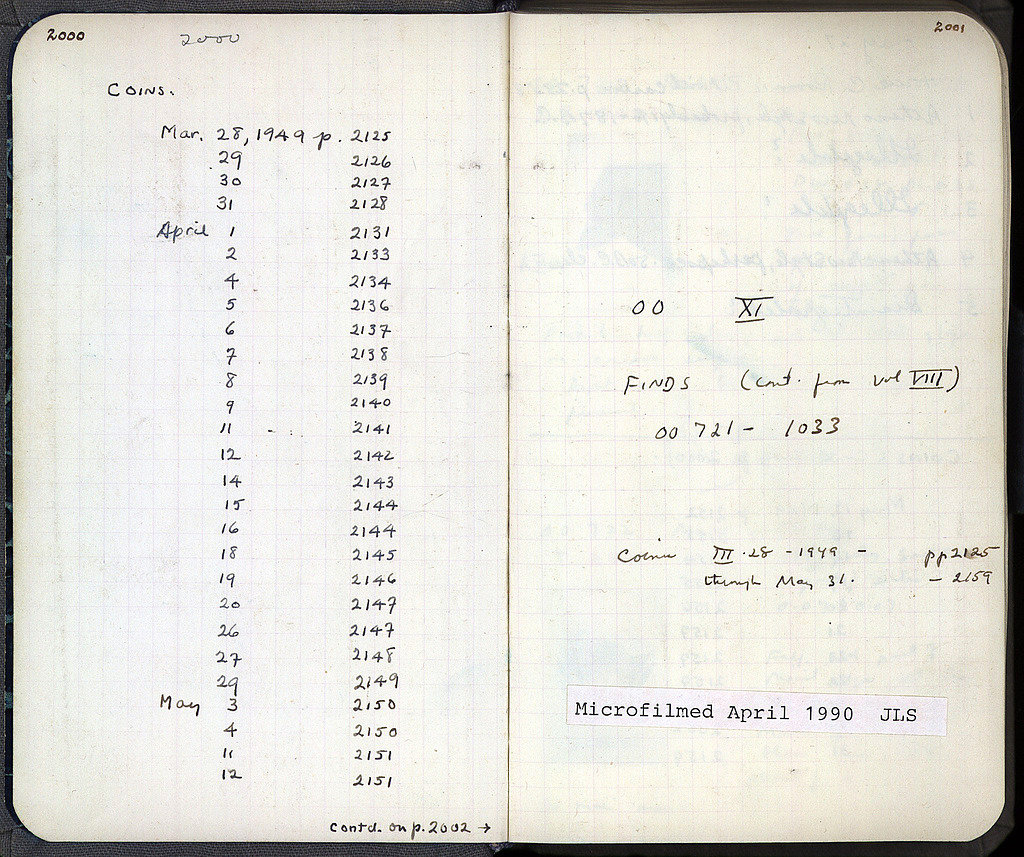 2000
2000
COINS.
Mar. 28, 1949 p. 2125
29 2126
30 2127
31 2128
April 1 2131
2 2133
4 2134
5 2136
6 2137
7 2138
8 2139
9 2140
11 2141
12 2142
14 2143
15 2144
16 2144
18 2145
19 2146
20 2147
26 2147
27 2148
29 2149
May 3 2150
4 2150
11 2151
12 2151
Contd. on p. 2002 →
2001
OO XI
FINDS (cont. from vol VIII)
OO 721 - 1033
Coins III · 28 - 1949 - pp 2125
through May 31. - 2159
Microfilmed April 1990 JLS